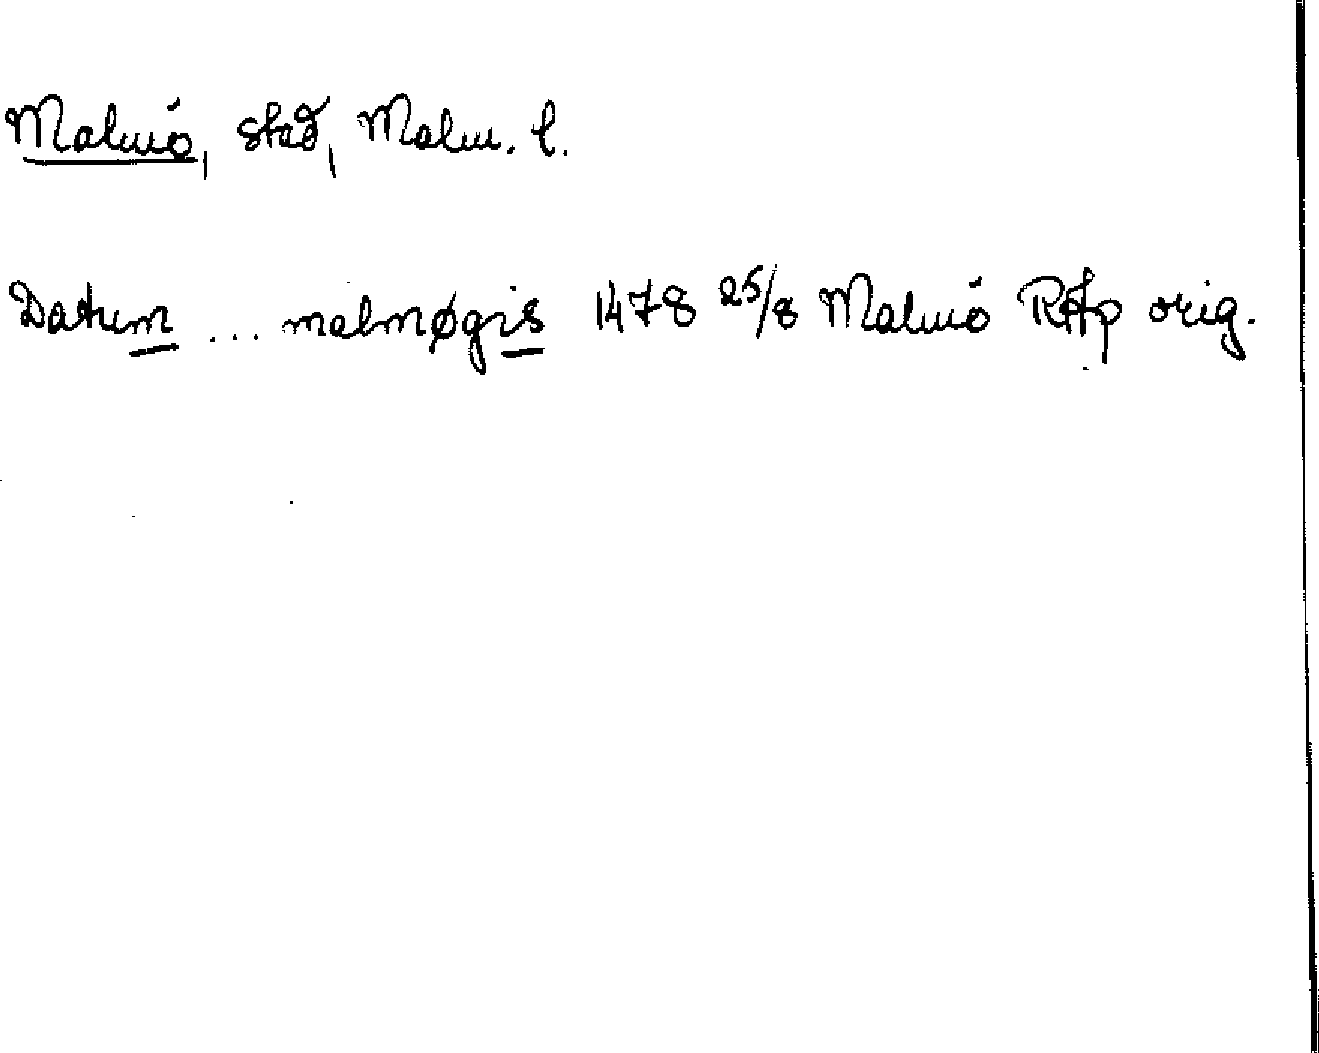 Malmö, stad, Malm. l.
Datum ... malmøgis 1478 25/8 Malmö RAp orig.